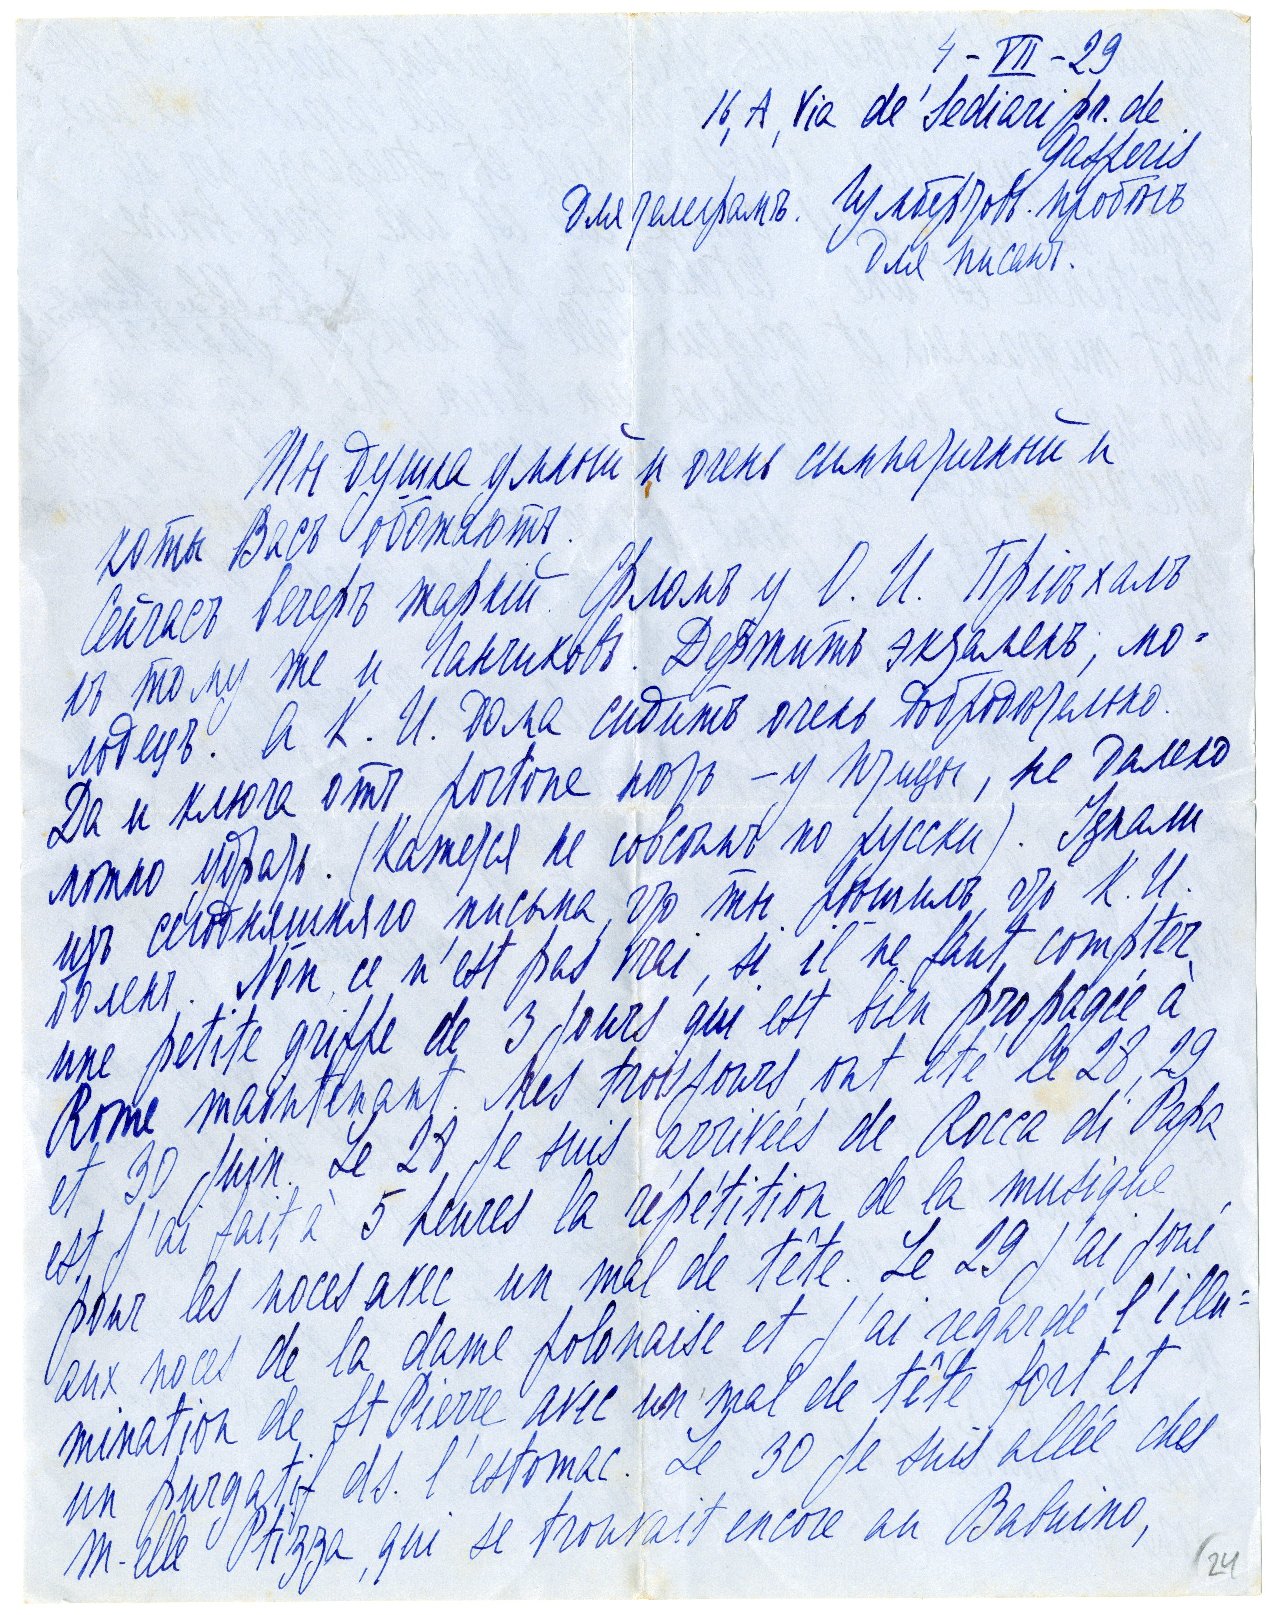 4-VII-29
16, A, Via de' Sediari pr. de
Gasperis
Для телеграмъ.
Для писемъ.
Ты душка умный и очень симпатичный и
коты Васъ обожаютъ.
Сейчасъ вечеръ жаркій. у О. И. Пріѣхалъ
къ тому же и Ганчиковъ. Держитъ экзаменъ, мо-
лодецъ. А К. И. дома сидитъ очень добродѣтельно.
Да и ключа отъ portone нѣтъ - у Птицы, не далеко
можно удрать. (Кажется не совсѣмъ по русски). Узнали
изъ сегодняшняго письма, что ты рѣшилъ, что К. И.
боленъ. Non, ce n'est pas vrai, si il ne faut compter
une petite griffe de 3 jours qui est bien propagée à
Rome maintenant. Mes trois jours ont été le 28, 29
et 30 Juin. Le 28 je suis arrivées de Rocca di Papa
est j'ai fait à 5 heures la répétition de la musique
pour les noces avec un mal de tête. Le 29 j'ai joué
aux noces de la dame polonaise et j'ai regardé l'illu-
mination de St Pierre avec un mal de tête fort et
un purgatif ds. l'estomac. Le 30 je suis allée ches
m-elle Ptizza, qui se trouvait encore au Babuino,
24